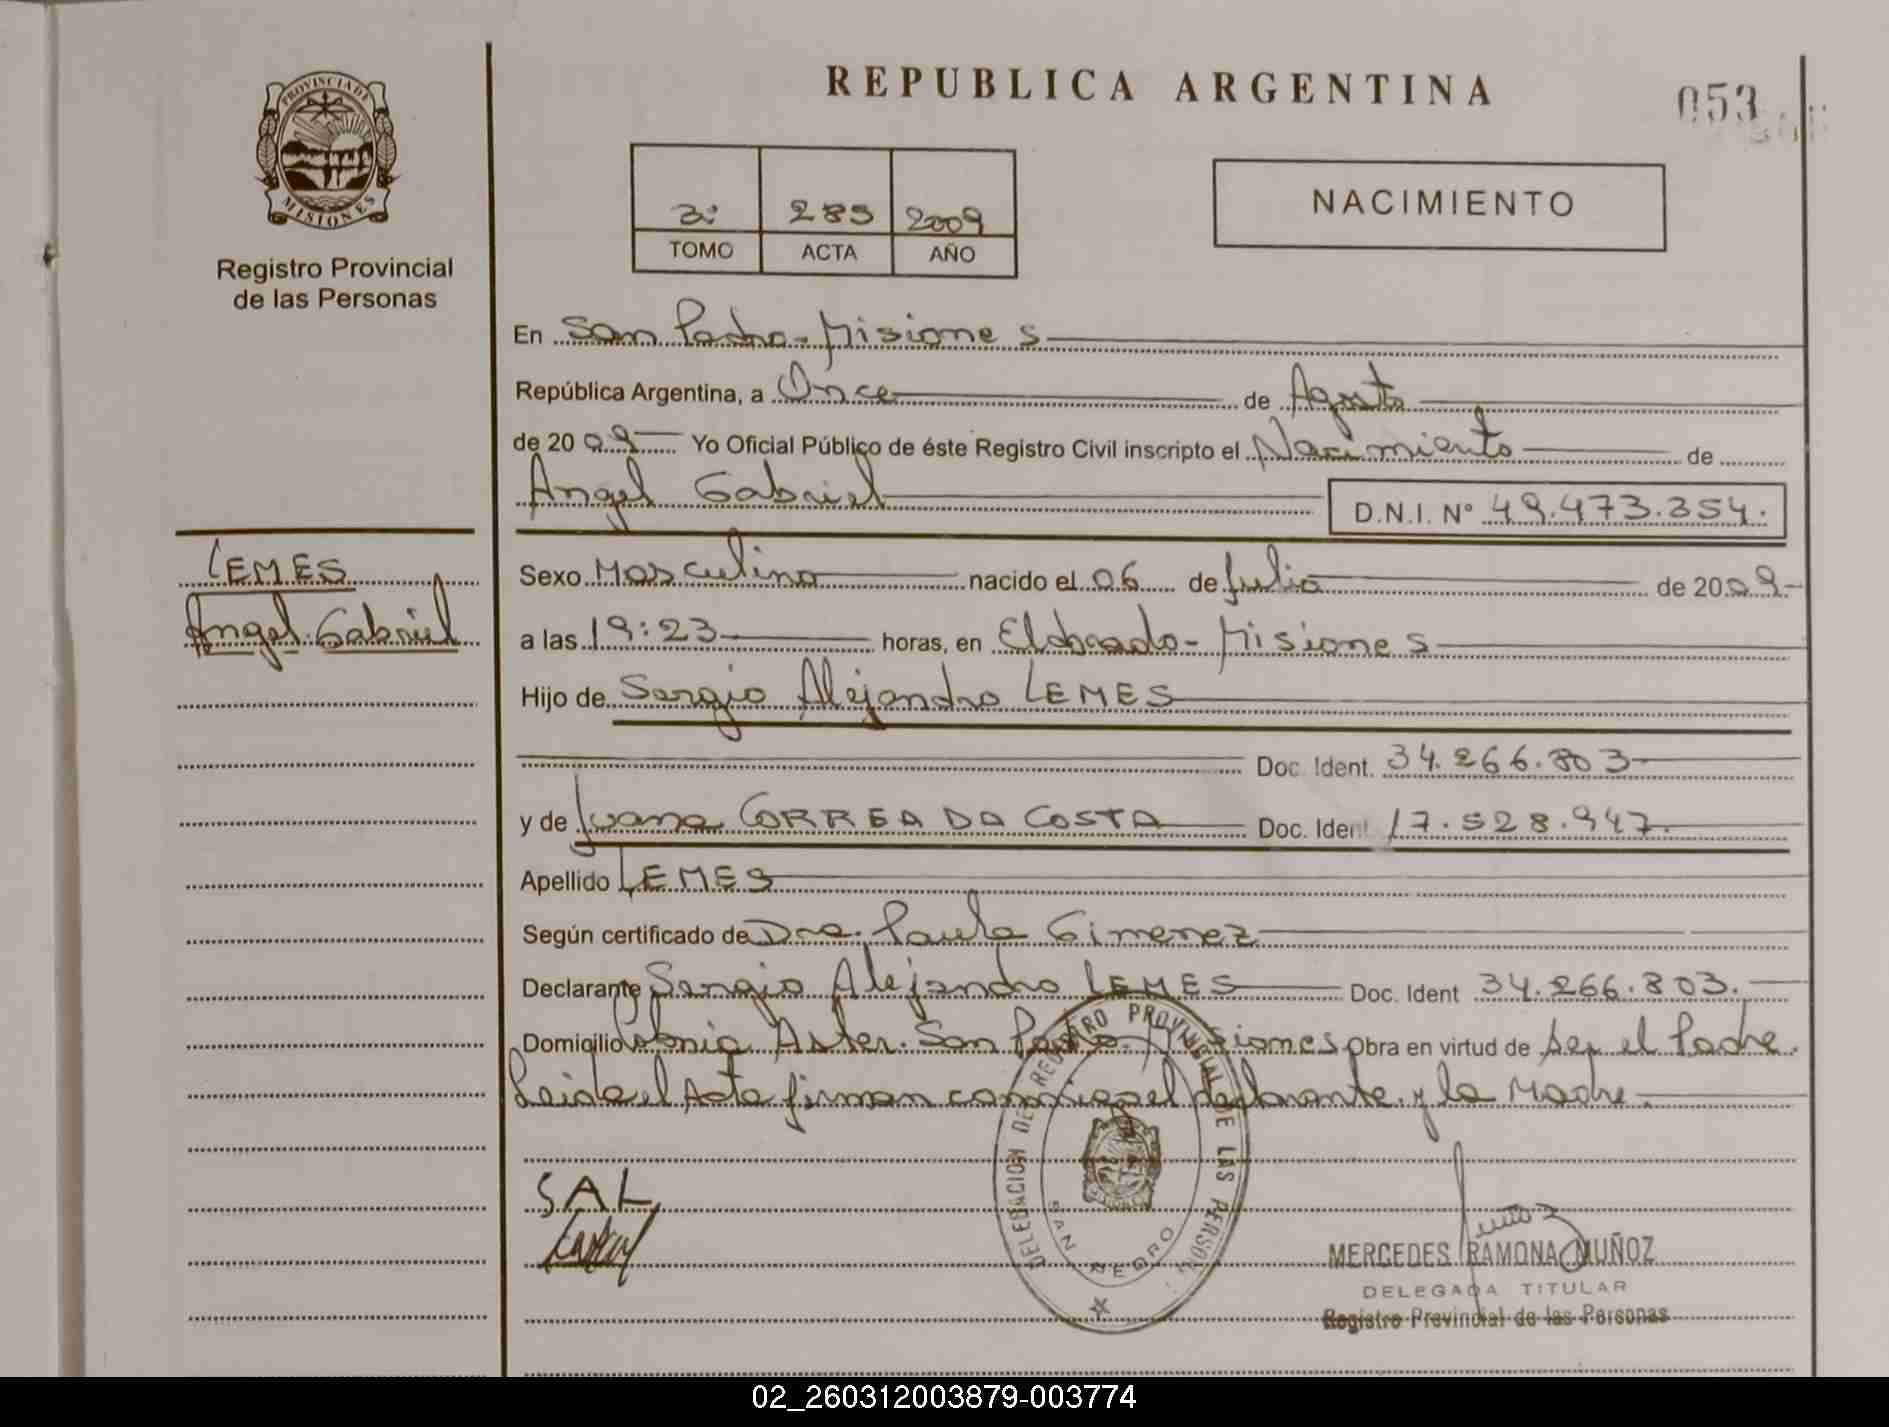 REPUBLICA ARGENTINA
053
PROVINCIA DE
MISIONES
Registro Provincial
de las Personas
3º 285 2009
TOMO ACTA AÑO
NACIMIENTO
En San Pedro - Misiones
República Argentina, a Once de Agosto
de 2009 Yo Oficial Público de éste Registro Civil inscripto el Nacimiento de
Angel Gabriel D.N.I. Nº 49.473.354.
LEMES
Angel Gabriel
Sexo Masculino nacido el 06 de Julio de 2009
a las 19:23 horas, en Eldorado - Misiones
Hijo de Sergio Alejandro LEMES
Doc. Ident. 34.266.803
y de Juana CORREA DA COSTA Doc. Ident 17.528.947.
Apellido LEMES
Según certificado de Dra. Paula Gimenez
Declarante Sergio Alejandro LEMES Doc. Ident 34.266.803.
Domicilio Colonia San Pedro Misiones Obra en virtud de ser el Padre.
Leida el Acta firman conmigo el declarante y la Madre.
DELEGACION DEL REGISTRO PROVINCIAL DE LAS PERSONAS
SAN PEDRO
SAL
MERCEDES RAMONA MUÑOZ
DELEGADA TITULAR
Registro Provincial de las Personas
02_260312003879-003774